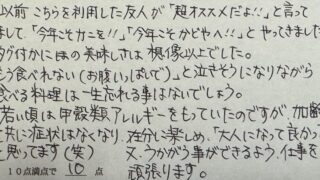 以前こちらを利用した友人が「超オススメだよ!!」と言って
まして、「今年こそカニを!!」「今年こそかどやへ!!」とやってきました
タグ付かにの美味しさは想像以上でした。
もう食べれない(お腹いっぱいで)と泣きそうになりながら
食べる料理は一生忘れる事はないでしょう。
若い頃は甲殻類アレルギーをもっていたのですが、加齢
と共に症状はなくなり、存分に楽しめ、「大人になって良かっ
と思ってます(笑) 又、うかがう事ができるよう、仕事を
10点満点で 10 点 頑張ります。